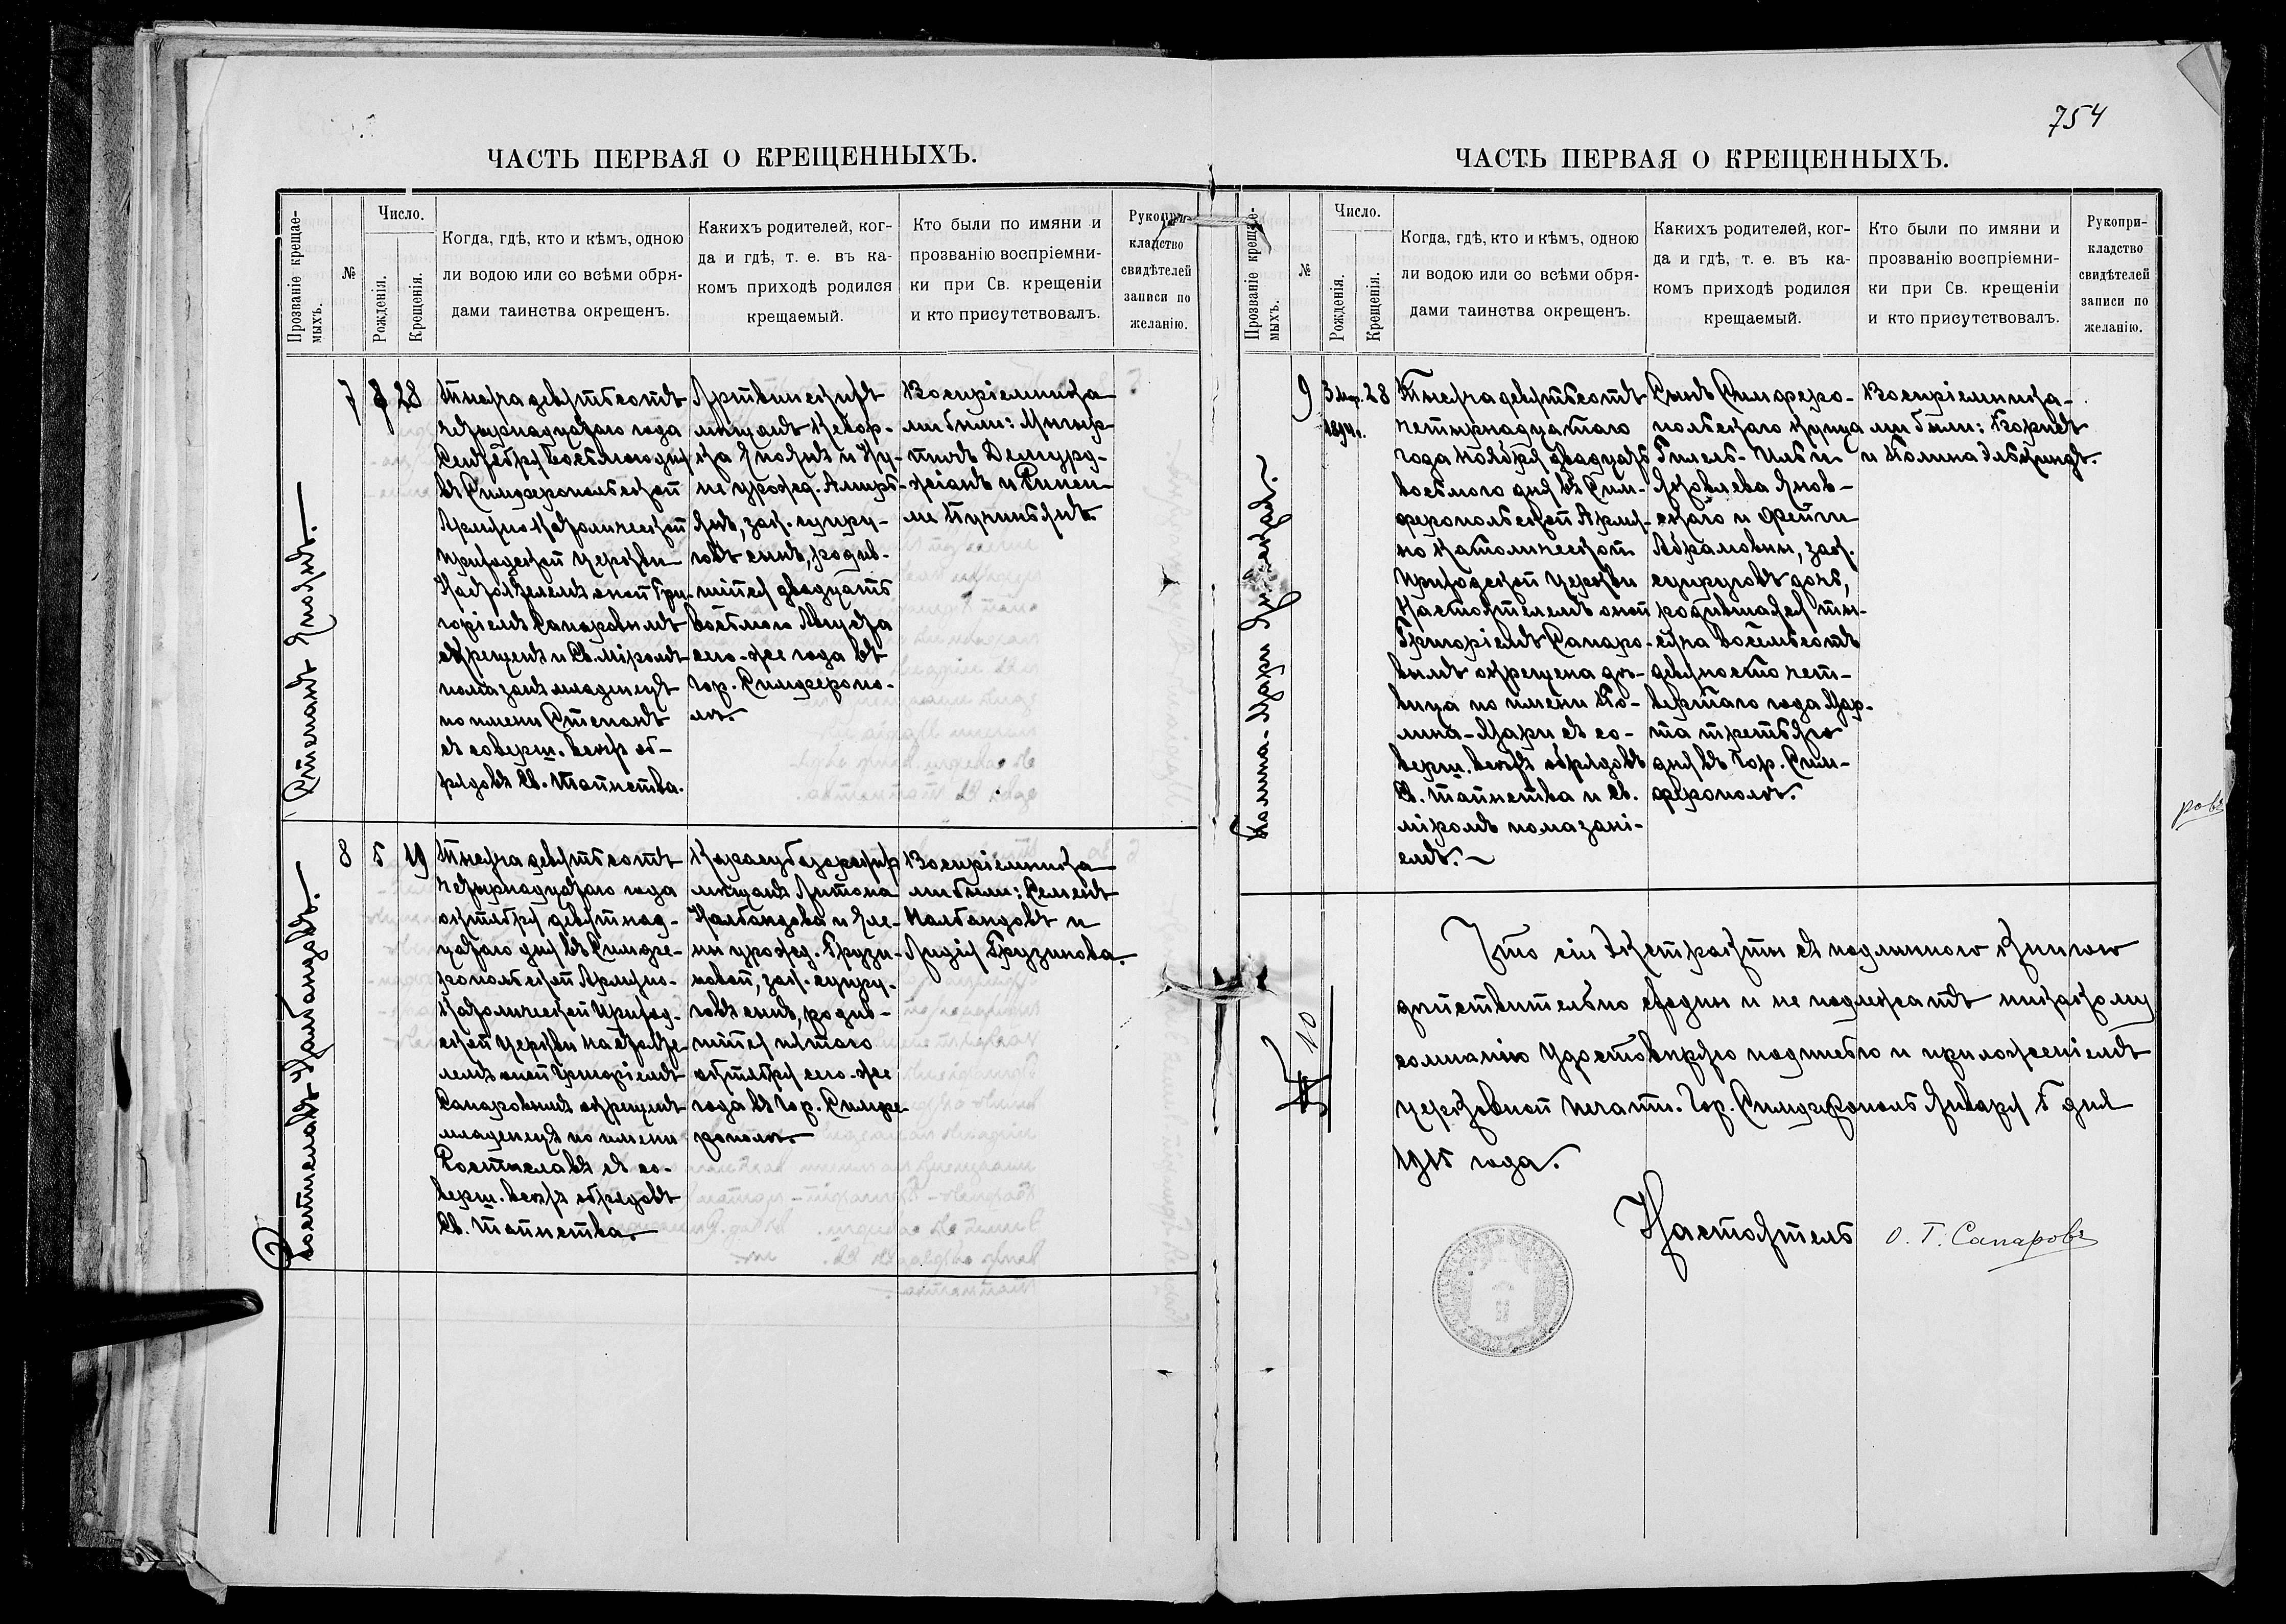 754
ЧАСТЬ ПЕРВАЯ О КРЕЩЕННЫХЪ.
Прозваніе крещае-
мыхъ.
№
Число.
Рожденія.
Крещенія.
Когда, гдѣ, кто и кѣмъ, одною
ли водою или со всѣми обря-
дами таинства окрещенъ.
Какихъ родителей, ког-
да и гдѣ, т. е. въ ка-
комъ приходѣ родился
крещаемый.
Кто были по имяни и
прозванію воспріемни-
ки при Св. крещеніи
и кто присутствовалъ.
Рукопри-
кладство
свидѣтелей
записи по
желанію.
Степанъ
7
8
28
Тысяча девятьсотъ
четырнадцатаго года
Сентября восьмого дня
въ Симферопольской
Армяно-Католической
приходской церкви
Настоятелемъ оной Гри-
горіемъ Сапаровымъ
окрещенъ и Св. міромъ
помазанъ младенецъ
по имени Степанъ
съ соверш. всѣхъ об-
рядовъ Св. Таинства.
Артвинскихъ
мѣщанъ Кевор-
ка и Ну-
не урожд. Амирь-
янъ, зак. супру-
говъ сынъ, родив-
шійся двадцать
восьмого Августа
сего-же года въ
гор. Симферопо-
лѣ.
Воспріемника-
ми были: Мкыр-
тичъ Демурд-
жіанъ и
8
5
19
Ростиславъ Налбандовъ.
Тысяча девятьсотъ
четырнадцатаго года
октября девятнад-
цатаго дня въ Симфе-
ропольской Армяно-
Католической Приход-
ской церкви Настояте-
лемъ оной Григоріемъ
Сапаровымъ окрещенъ
младенецъ по имени
Ростиславъ съ со-
верш. всѣхъ обрядовъ
Св. Таинства.
Карасубазарскихъ
мѣщанъ Антона
Налбандова и Еле-
ны урожд. Грузи-
новой, зак. супру-
говъ сынъ, родив-
шійся пятаго
октября сего-же
года въ гор. Симфе-
рополѣ.
Воспріемника-
ми были: Семенъ
Налбандовъ и
Лидія Грузинова.
ЧАСТЬ ПЕРВАЯ О КРЕЩЕННЫХЪ.
Прозваніе крещае-
мыхъ.
№
Число.
Рожденія.
Крещенія.
Когда, гдѣ, кто и кѣмъ, одною
ли водою или со всѣми обря-
дами таинства окрещенъ.
Какихъ родителей, ког-
да и гдѣ, т. е. въ ка-
комъ приходѣ родился
крещаемый.
Кто были по имяни и
прозванію воспріемни-
ки при Св. крещеніи
и кто присутствовалъ.
Рукопри-
кладство
свидѣтелей
записи по
желанію.
Полина-Мари
9
3 Мар.
1894г.
28
Тысяча девятьсотъ
четырнадцатаго
года Ноября двадцать
восьмого дня въ Сим-
феропольской Армя-
но Католической
Приходской Церкви
Настоятелемъ оной
Григоріемъ Сапаро-
вымъ окрещена дѣ-
вица по имени По-
лина-Мари съ со-
верш. всѣхъ обрядовъ
Св. таинства и Св.
міромъ помазані-
емъ.
Симферо-
польскаго купца
Яковлева Янов-
скаго и Фейги
Абрамовны, зак.
супруговъ дочь,
родившаяся ты-
сяча восемьсотъ
девяносто чет-
вертаго года Мар-
та третьяго
дня въ гор. Сим-
ферополѣ.
Воспріемника-
ми были:
и Полина
№ 10
Что сіи Экстракты съ подлинною книгою
дѣйствительно сходны и не подлежатъ никакому
сомнѣнію удостовѣряю подписью и приложеніемъ
церковной печати. Гор. Симферополь Января 5 дня
1915 года.
Настоятель О. Г. Сапаровъ
ровъ